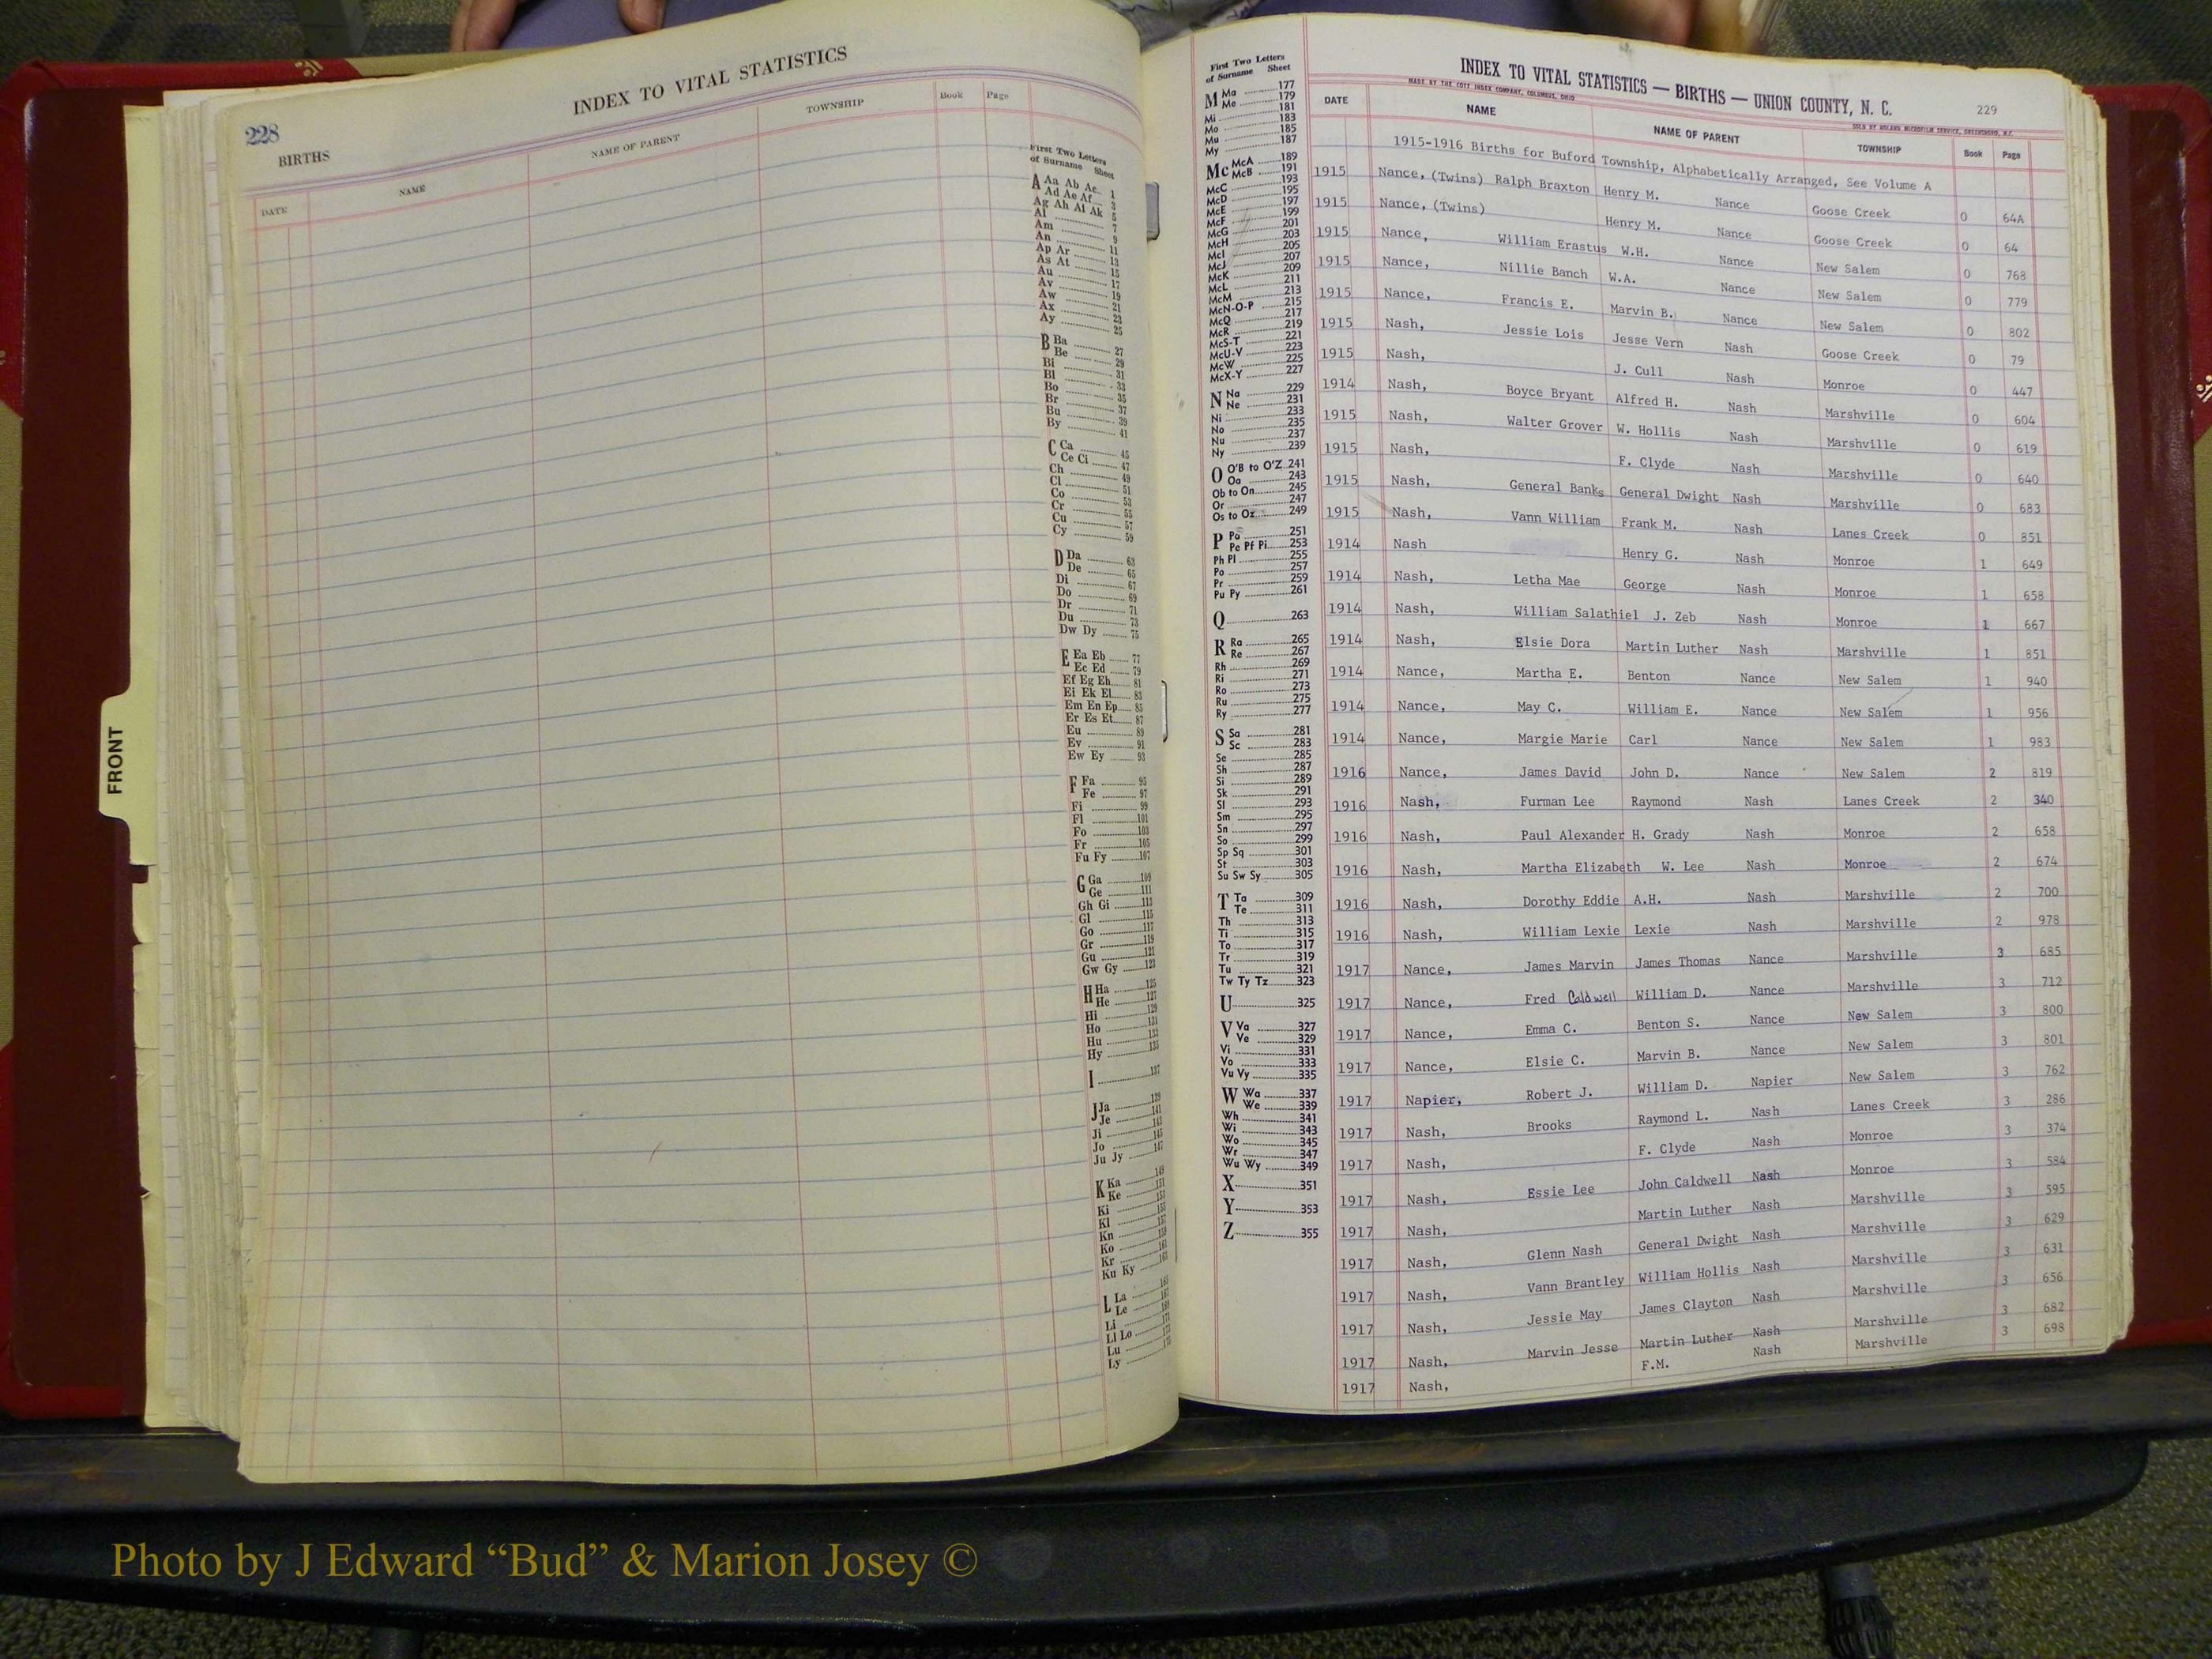 228
INDEX TO VITAL STATISTICS
BIRTHS
DATE NAME NAME OF PARENT TOWNSHIP Book Page
First Two Letters
of Surname Sheet
A Aa Ab Ac 1
Ad Ae Af 3
Ag Ah Ai Ak 5
Al 7
Am 9
An 11
Ap Ar 13
As At 15
Au 17
Av 19
Aw 21
Ax 23
Ay 25
B Ba 27
Be 29
Bi 31
Bl 33
Bo 35
Br 37
Bu 39
By 41
C Ca 45
Ce Ci 47
Ch 49
Cl 51
Co 53
Cr 55
Cu 57
Cy 59
D Da 63
De 65
Di 67
Do 69
Dr 71
Du 73
Dw Dy 75
E Ea Eb 77
Ec Ed 79
Ef Eg Eh 81
Ei Ek El 83
Em En Ep 85
Er Es Et 87
Eu 89
Ev 91
Ew Ey 93
F Fa 95
Fe 97
Fi 99
Fl 101
Fo 103
Fr 105
Fu Fy 107
G Ga 109
Ge 111
Gh Gi 113
Gl 115
Go 117
Gr 119
Gu 121
Gw Gy 123
H Ha 125
He 127
Hi 129
Ho 131
Hu 133
Hy 135
I 137
J Ja 139
Je 141
Ji 143
Jo 145
Ju Jy 147
K Ka 149
Ke 151
Ki 153
Kl 155
Kn 157
Ko 159
Kr 161
Ku Ky 163
L La 165
Le 167
Li 169
Ll Lo 171
Lu 173
Ly 175
FRONT
First Two Letters
of Surname Sheet
M Ma 177
Me 179
Mi 181
Mo 183
Mu 185
My 187
Mc McA 189
McB 191
McC 193
McD 195
McE 197
McF 199
McG 201
McH 203
McI 205
McJ 207
McK 209
McL 211
McM 213
McN-O-P 215
McQ 217
McR 219
McS-T 221
McU-V 223
McW 225
McX-Y 227
N Na 229
Ne 231
Ni 233
No 235
Nu 237
Ny 239
O O'B to O'Z 241
Oa 243
Ob to On 245
Or 247
Os to Oz 249
P Pa 251
Pe Pf Pi 253
Ph Pl 255
Po 257
Pr 259
Pu Py 261
Q 263
R Ra 265
Re 267
Rh 269
Ri 271
Ro 273
Ru 275
Ry 277
S Sa 281
Sc 283
Se 285
Sh 287
Si 289
Sk 291
Sl 293
Sm 295
Sn 297
So 299
Sp Sq 301
St 303
Su Sw Sy 305
T Ta 309
Te 311
Th 313
Ti 315
To 317
Tr 319
Tu 321
Tw Ty Tz 323
U 325
V Va 327
Ve 329
Vi 331
Vo 333
Vu Vy 335
W Wa 337
We 339
Wh 341
Wi 343
Wo 345
Wr 347
Wu Wy 349
X 351
Y 353
Z 355
INDEX TO VITAL STATISTICS — BIRTHS — UNION COUNTY, N. C. 229
MADE BY THE COTT INDEX COMPANY, COLUMBUS, OHIO
SOLD BY ROLAND MICROFILM SERVICE, GREENSBORO, N.C.
DATE NAME NAME OF PARENT TOWNSHIP Book Page
1915-1916 Births for Buford Township, Alphabetically Arranged, See Volume A
1915 Nance, (Twins) Ralph Braxton Henry M. Nance Goose Creek 0 64A
1915 Nance, (Twins) Henry M. Nance Goose Creek 0 64
1915 Nance, William Erastus W.H. Nance New Salem 0 768
1915 Nance, Nillie Banch W.A. Nance New Salem 0 779
1915 Nance, Francis E. Marvin B. Nance New Salem 0 802
1915 Nash, Jessie Lois Jesse Vern Nash Goose Creek 0 79
1915 Nash, J. Cull Nash Monroe 0 447
1914 Nash, Boyce Bryant Alfred H. Nash Marshville 0 604
1915 Nash, Walter Grover W. Hollis Nash Marshville 0 619
1915 Nash, F. Clyde Nash Marshville 0 640
1915 Nash, General Banks General Dwight Nash Marshville 0 683
1915 Nash, Vann William Frank M. Nash Lanes Creek 0 851
1914 Nash Henry G. Nash Monroe 1 649
1914 Nash, Letha Mae George Nash Monroe 1 658
1914 Nash, William Salathiel J. Zeb Nash Monroe 1 667
1914 Nash, Elsie Dora Martin Luther Nash Marshville 1 851
1914 Nance, Martha E. Benton Nance New Salem 1 940
1914 Nance, May C. William E. Nance New Salem 1 956
1914 Nance, Margie Marie Carl Nance New Salem 1 983
1916 Nance, James David John D. Nance New Salem 2 819
1916 Nash, Furman Lee Raymond Nash Lanes Creek 2 340
1916 Nash, Paul Alexander H. Grady Nash Monroe 2 658
1916 Nash, Martha Elizabeth W. Lee Nash Monroe 2 674
1916 Nash, Dorothy Eddie A.H. Nash Marshville 2 700
1916 Nash, William Lexie Lexie Nash Marshville 2 978
1917 Nance, James Marvin James Thomas Nance Marshville 3 685
1917 Nance, Fred Caldwell William D. Nance Marshville 3 712
1917 Nance, Emma C. Benton S. Nance New Salem 3 800
1917 Nance, Elsie C. Marvin B. Nance New Salem 3 801
1917 Napier, Robert J. William D. Napier New Salem 3 762
1917 Nash, Brooks Raymond L. Nash Lanes Creek 3 286
1917 Nash, F. Clyde Nash Monroe 3 374
1917 Nash, Essie Lee John Caldwell Nash Monroe 3 584
1917 Nash, Martin Luther Nash Marshville 3 595
1917 Nash, Glenn Nash General Dwight Nash Marshville 3 629
1917 Nash, Vann Brantley William Hollis Nash Marshville 3 631
1917 Nash, Jessie May James Clayton Nash Marshville 3 656
1917 Nash, Marvin Jesse Martin Luther Nash Marshville 3 682
1917 Nash, F.M. Nash Marshville 3 698
Photo by J Edward “Bud” & Marion Josey ©